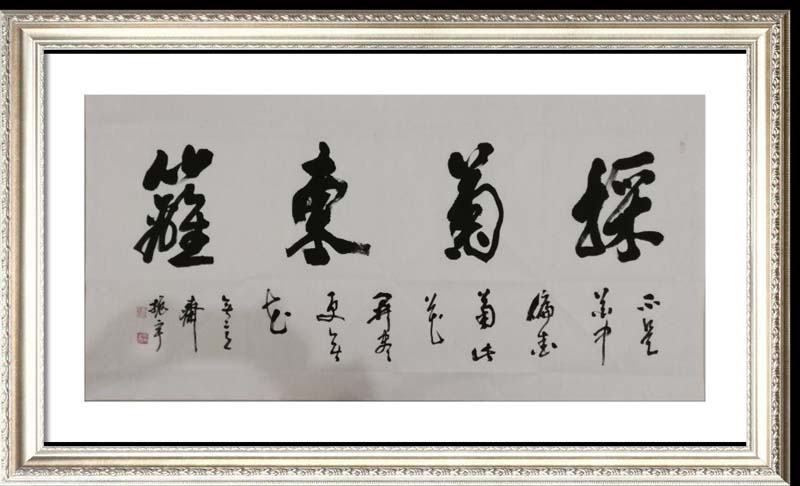 採菊東籬
不是
花中
偏愛
菊此
花
開盡
更無
花
齋
振宇